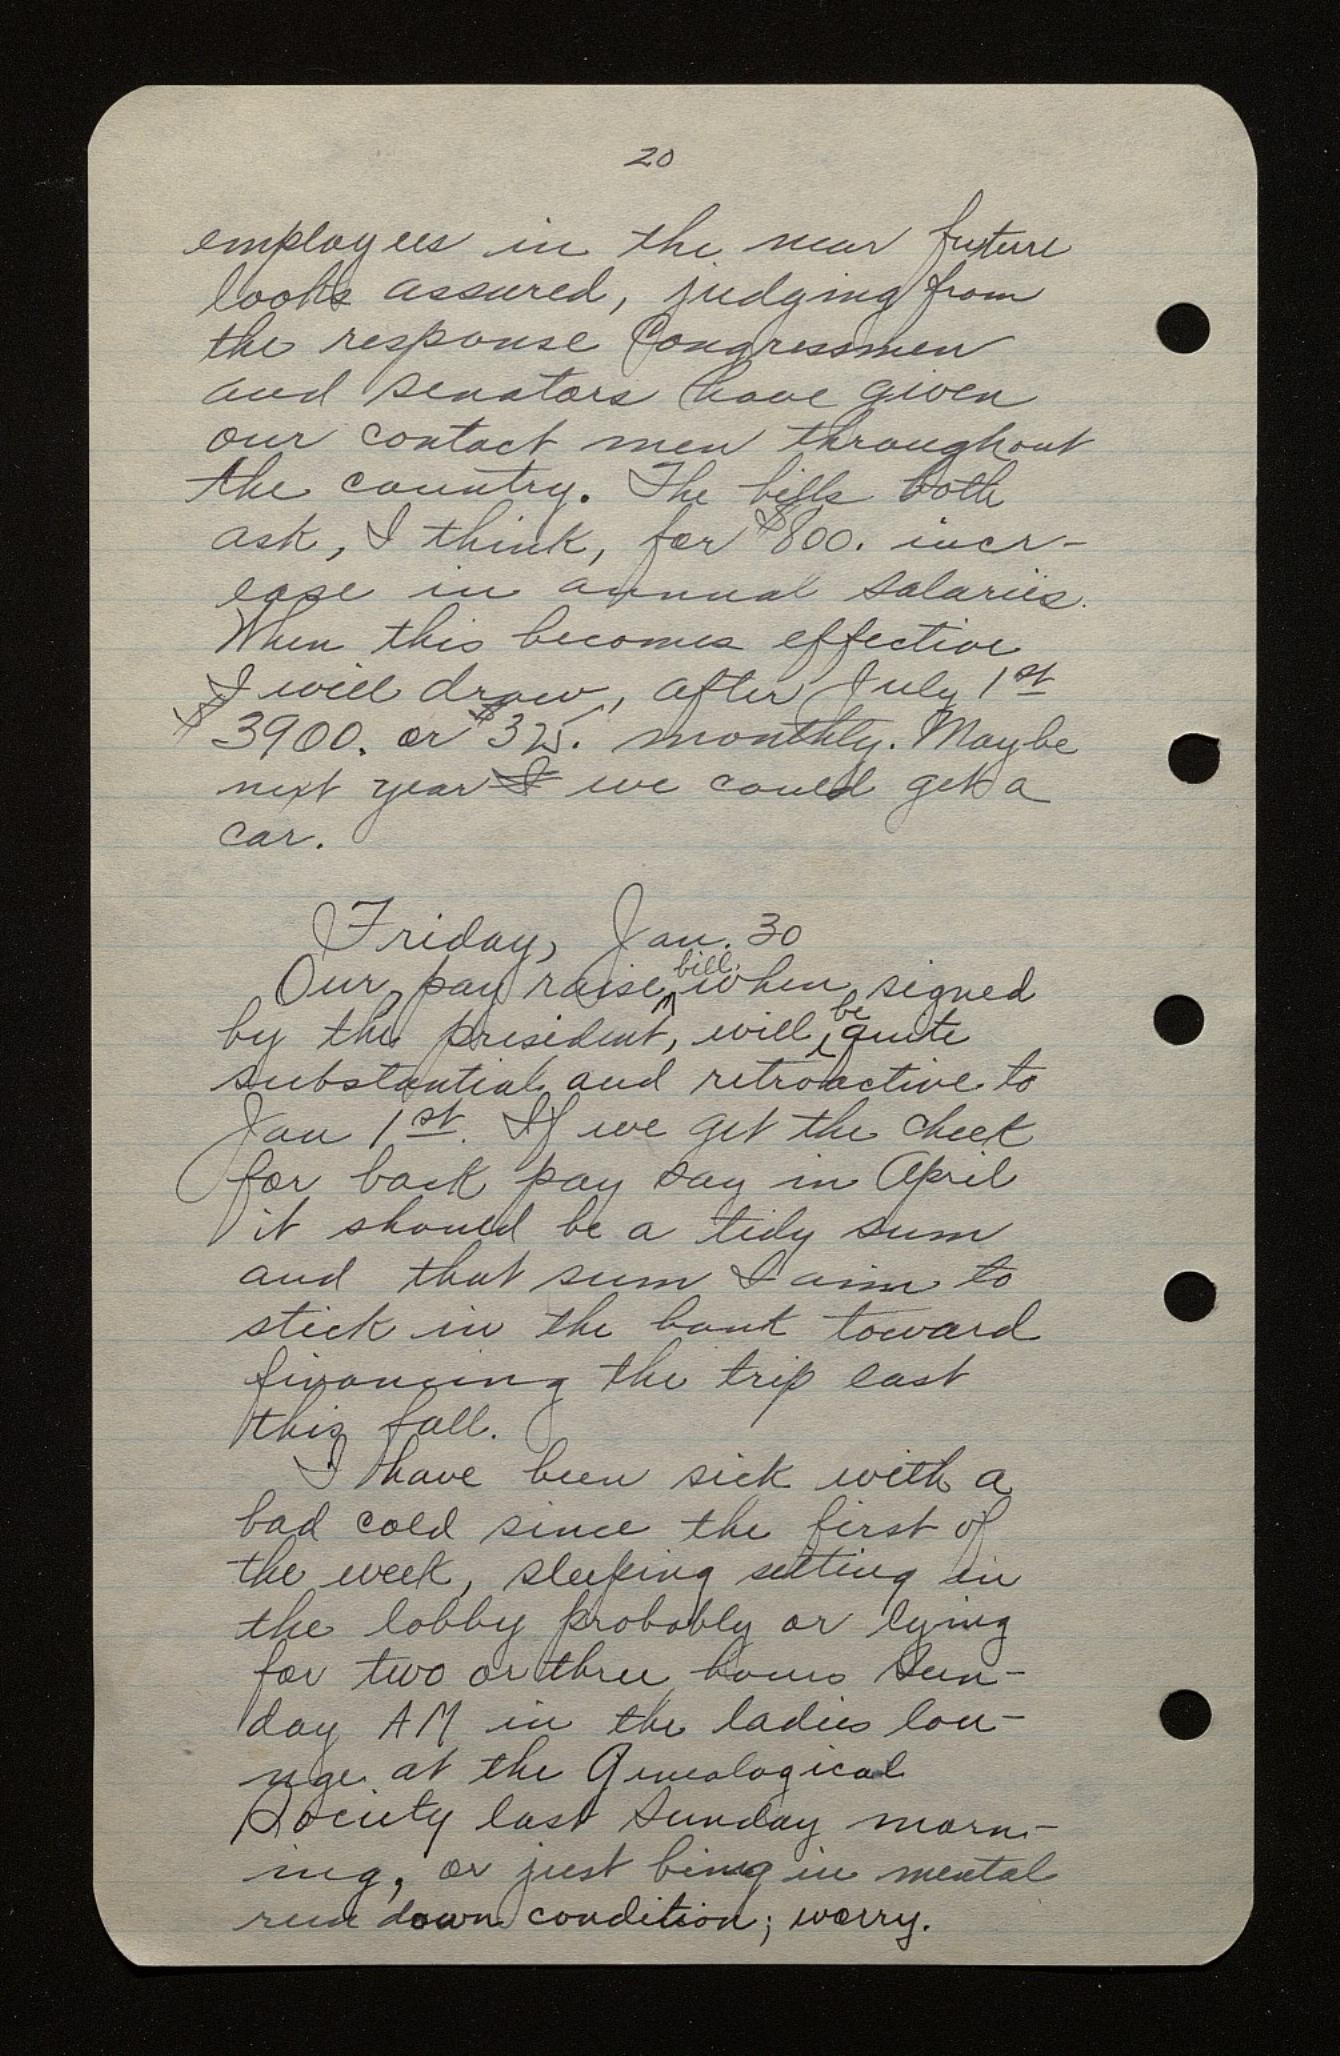 20
employees in the near future
looks assured, judging from
the response Congressmen
and senators have given
our contact men throughout
the country. The bills both
ask, I think, for $800. incr-
ease in annual salaries.
When this becomes effective
I will draw, after July 1st
$3900. or $325. monthly. Maybe
next year I we could get a
car.
Friday, Jan. 30
Our pay raise bill when signed
by the president, will be quite
substantial and retroactive to
Jan 1st. If we get the check
for back pay say in April
it should be a tidy sum
and that sum I aim to
stick in the bank toward
financing the trip east
this fall.
I have been sick with a
bad cold since the first of
the week, sleeping setting in
the lobby probably or lying
for two or three hours Sun-
day AM in the ladies lou-
nge at the Genealogical
Society last Sunday morn-
ing, or just being in mental
run down condition; worry.